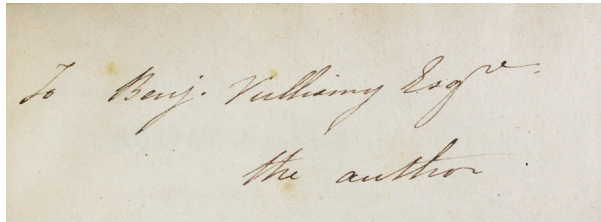 To Benj. Vulliamy Esqre.
the author